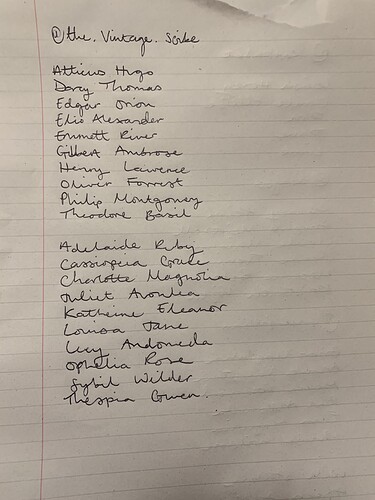 @the.Vintage.Scribe
Atticus Hugo
Darcy Thomas
Edgar Orion
Elio Alexander
Emmett River
Gilbert Ambrose
Henry Lawrence
Oliver Forrest
Philip Montgomery
Theodore Basil
Adelaide Ruby
Cassiopeia Grace
Charlotte Magnolia
Juliet Avonlea
Katherine Eleanor
Louisa Jane
Lucy Andromeda
Ophelia Rose
Sybil Wilder
Thespia Gwen.